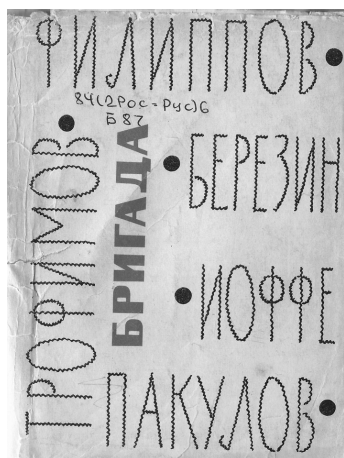 ФИЛИППОВ
84(2РОС=РУС)6
Б 87
ТРОФИМОВ
БРИГАДА
БЕРЕЗИН
ИОФФЕ
ПАКУЛОВ